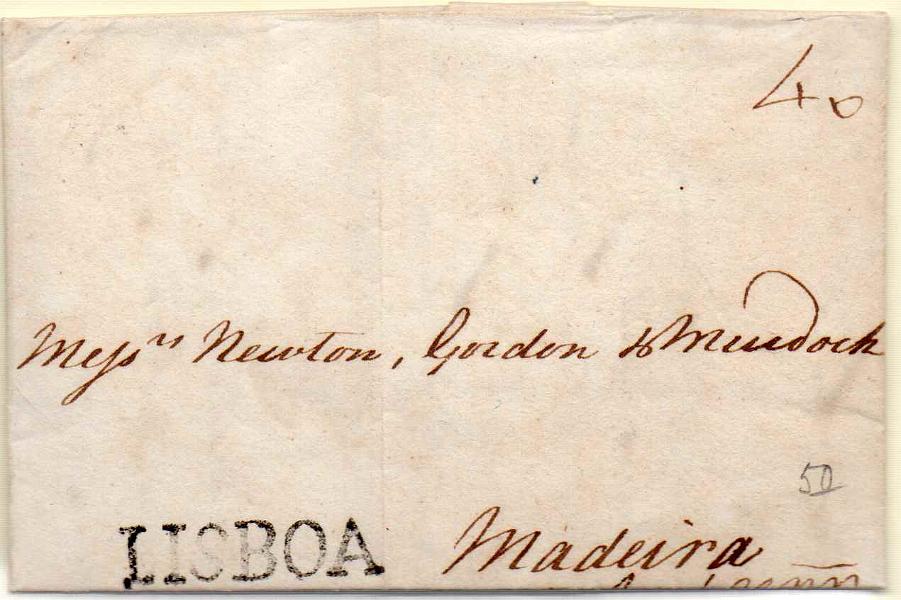 40
Messrs Newton, Gordon & Murdoch
50
LISBOA
Madeira